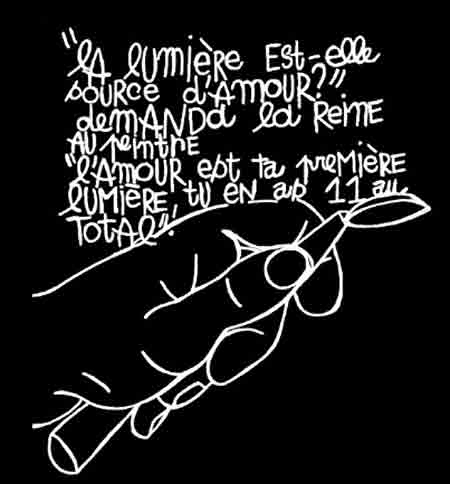 "LA LUMIÈRE EST-elle
SOURCE d'AMOUR?"
demANDA la REINE
AU peintre
"l'AMOUR est ta preMIÈRE
LUMIÈRE, TU EN as 11 au
TOTAL".